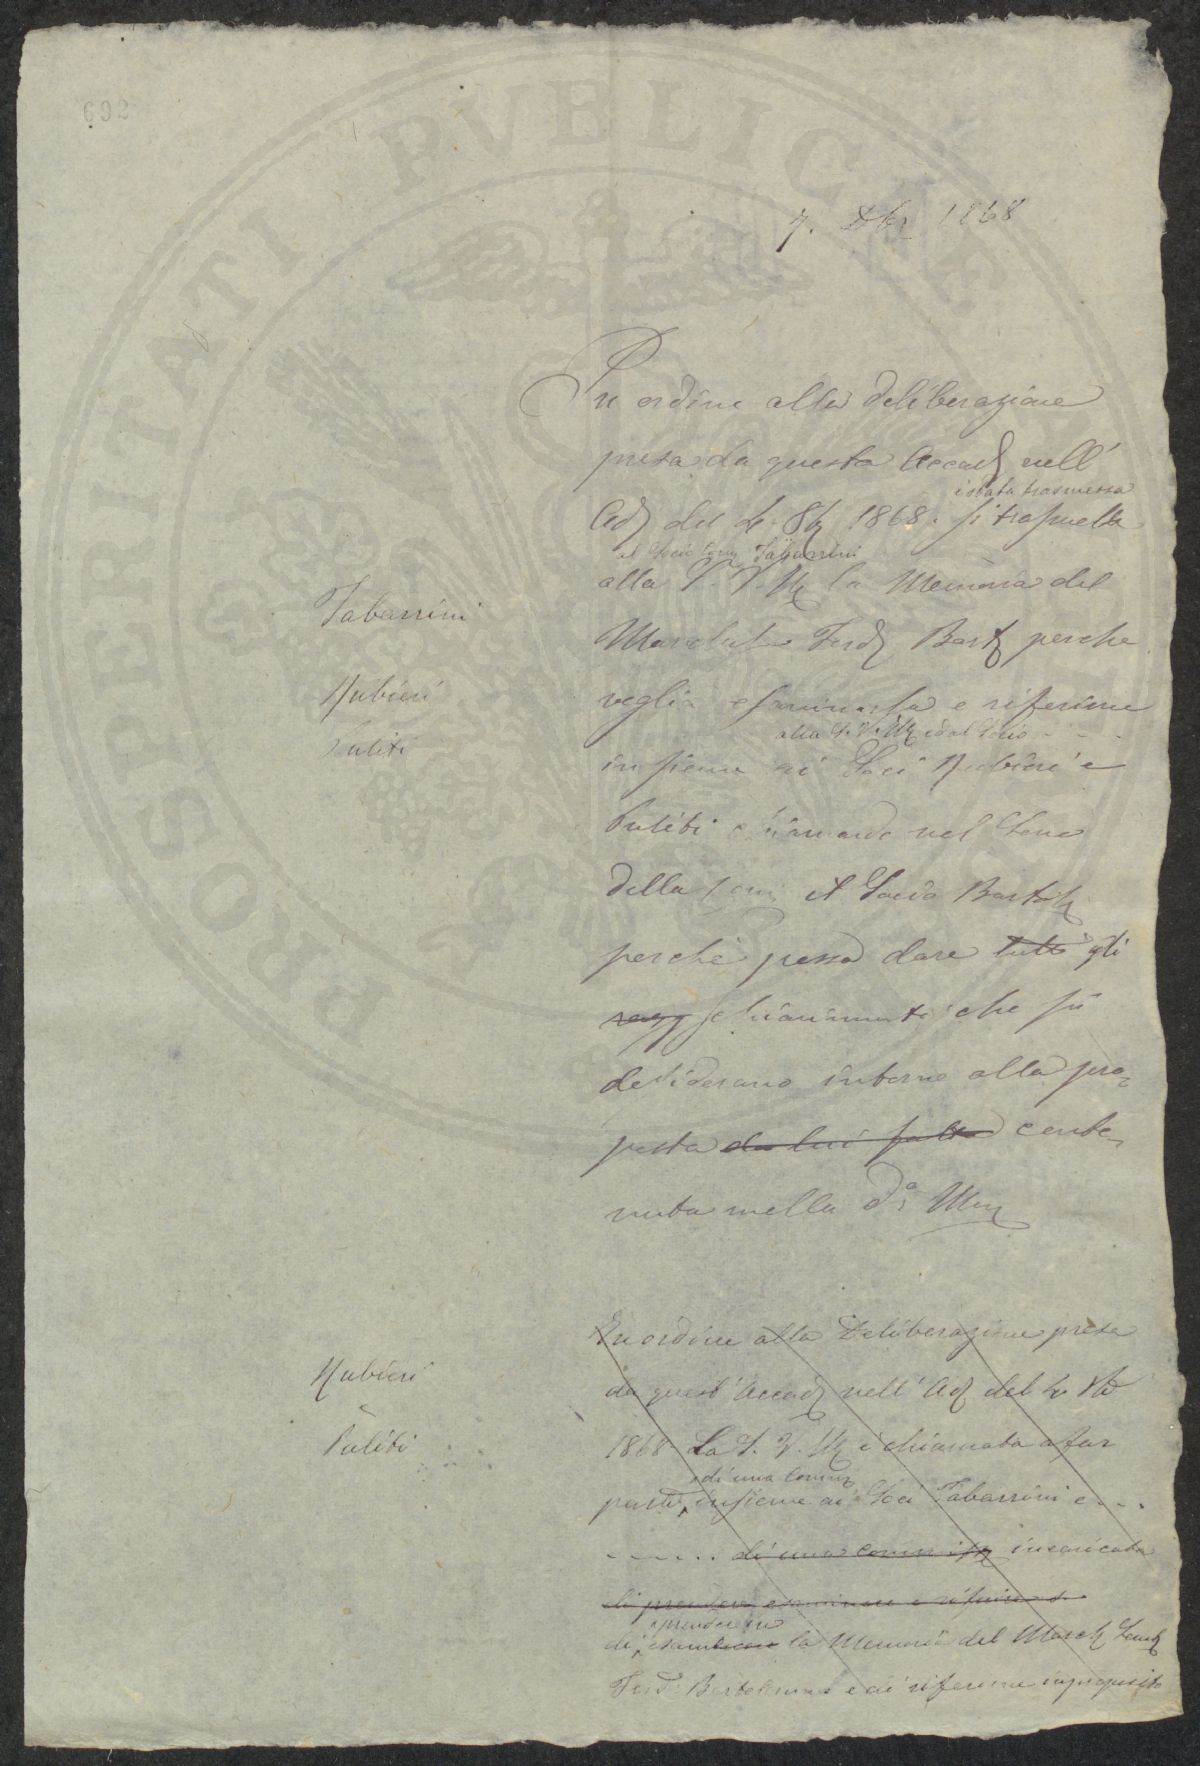 692
7. Xbr 1868
In ordine alla deliberazione
presa da questa Accad. nell'
è stata trasmessa
Ad. del 1868. si trasmette
al Socio Corr. Tabarrini
alla S. V. Ill. la Memoria del
Tabarrini
Marchese Ferd. Bart. perche
Rubieri
voglia esaminarla e riferirne
alla S. V. Ill. ed al Socio - - - -
Puliti
insieme ai Soci Rubieri e
Puliti chiamando nel Seno
della il Socio Bart.
perchè possa dare tutti gli
schiarimenti che si
desiderano intorno alla pro-
posta da lui fatta conte-
nuta nella d.a Mem
In ordine alla deliberazione presa
Rubieri
da quest'Accad. nell'Ad. del
Puliti
1868 La S. V. Ill. è chiamata a far
di una Comm.
parte insieme ai Soci Tabarrini e - - -
- - - - - . di una commiss. incaricata
di prendere esaminare e riferire
prendere in
di esaminare la Memoria del March.
Ferd. Bartolommei e di riferirne in proposito
PROSPERITATI PVBLICAE